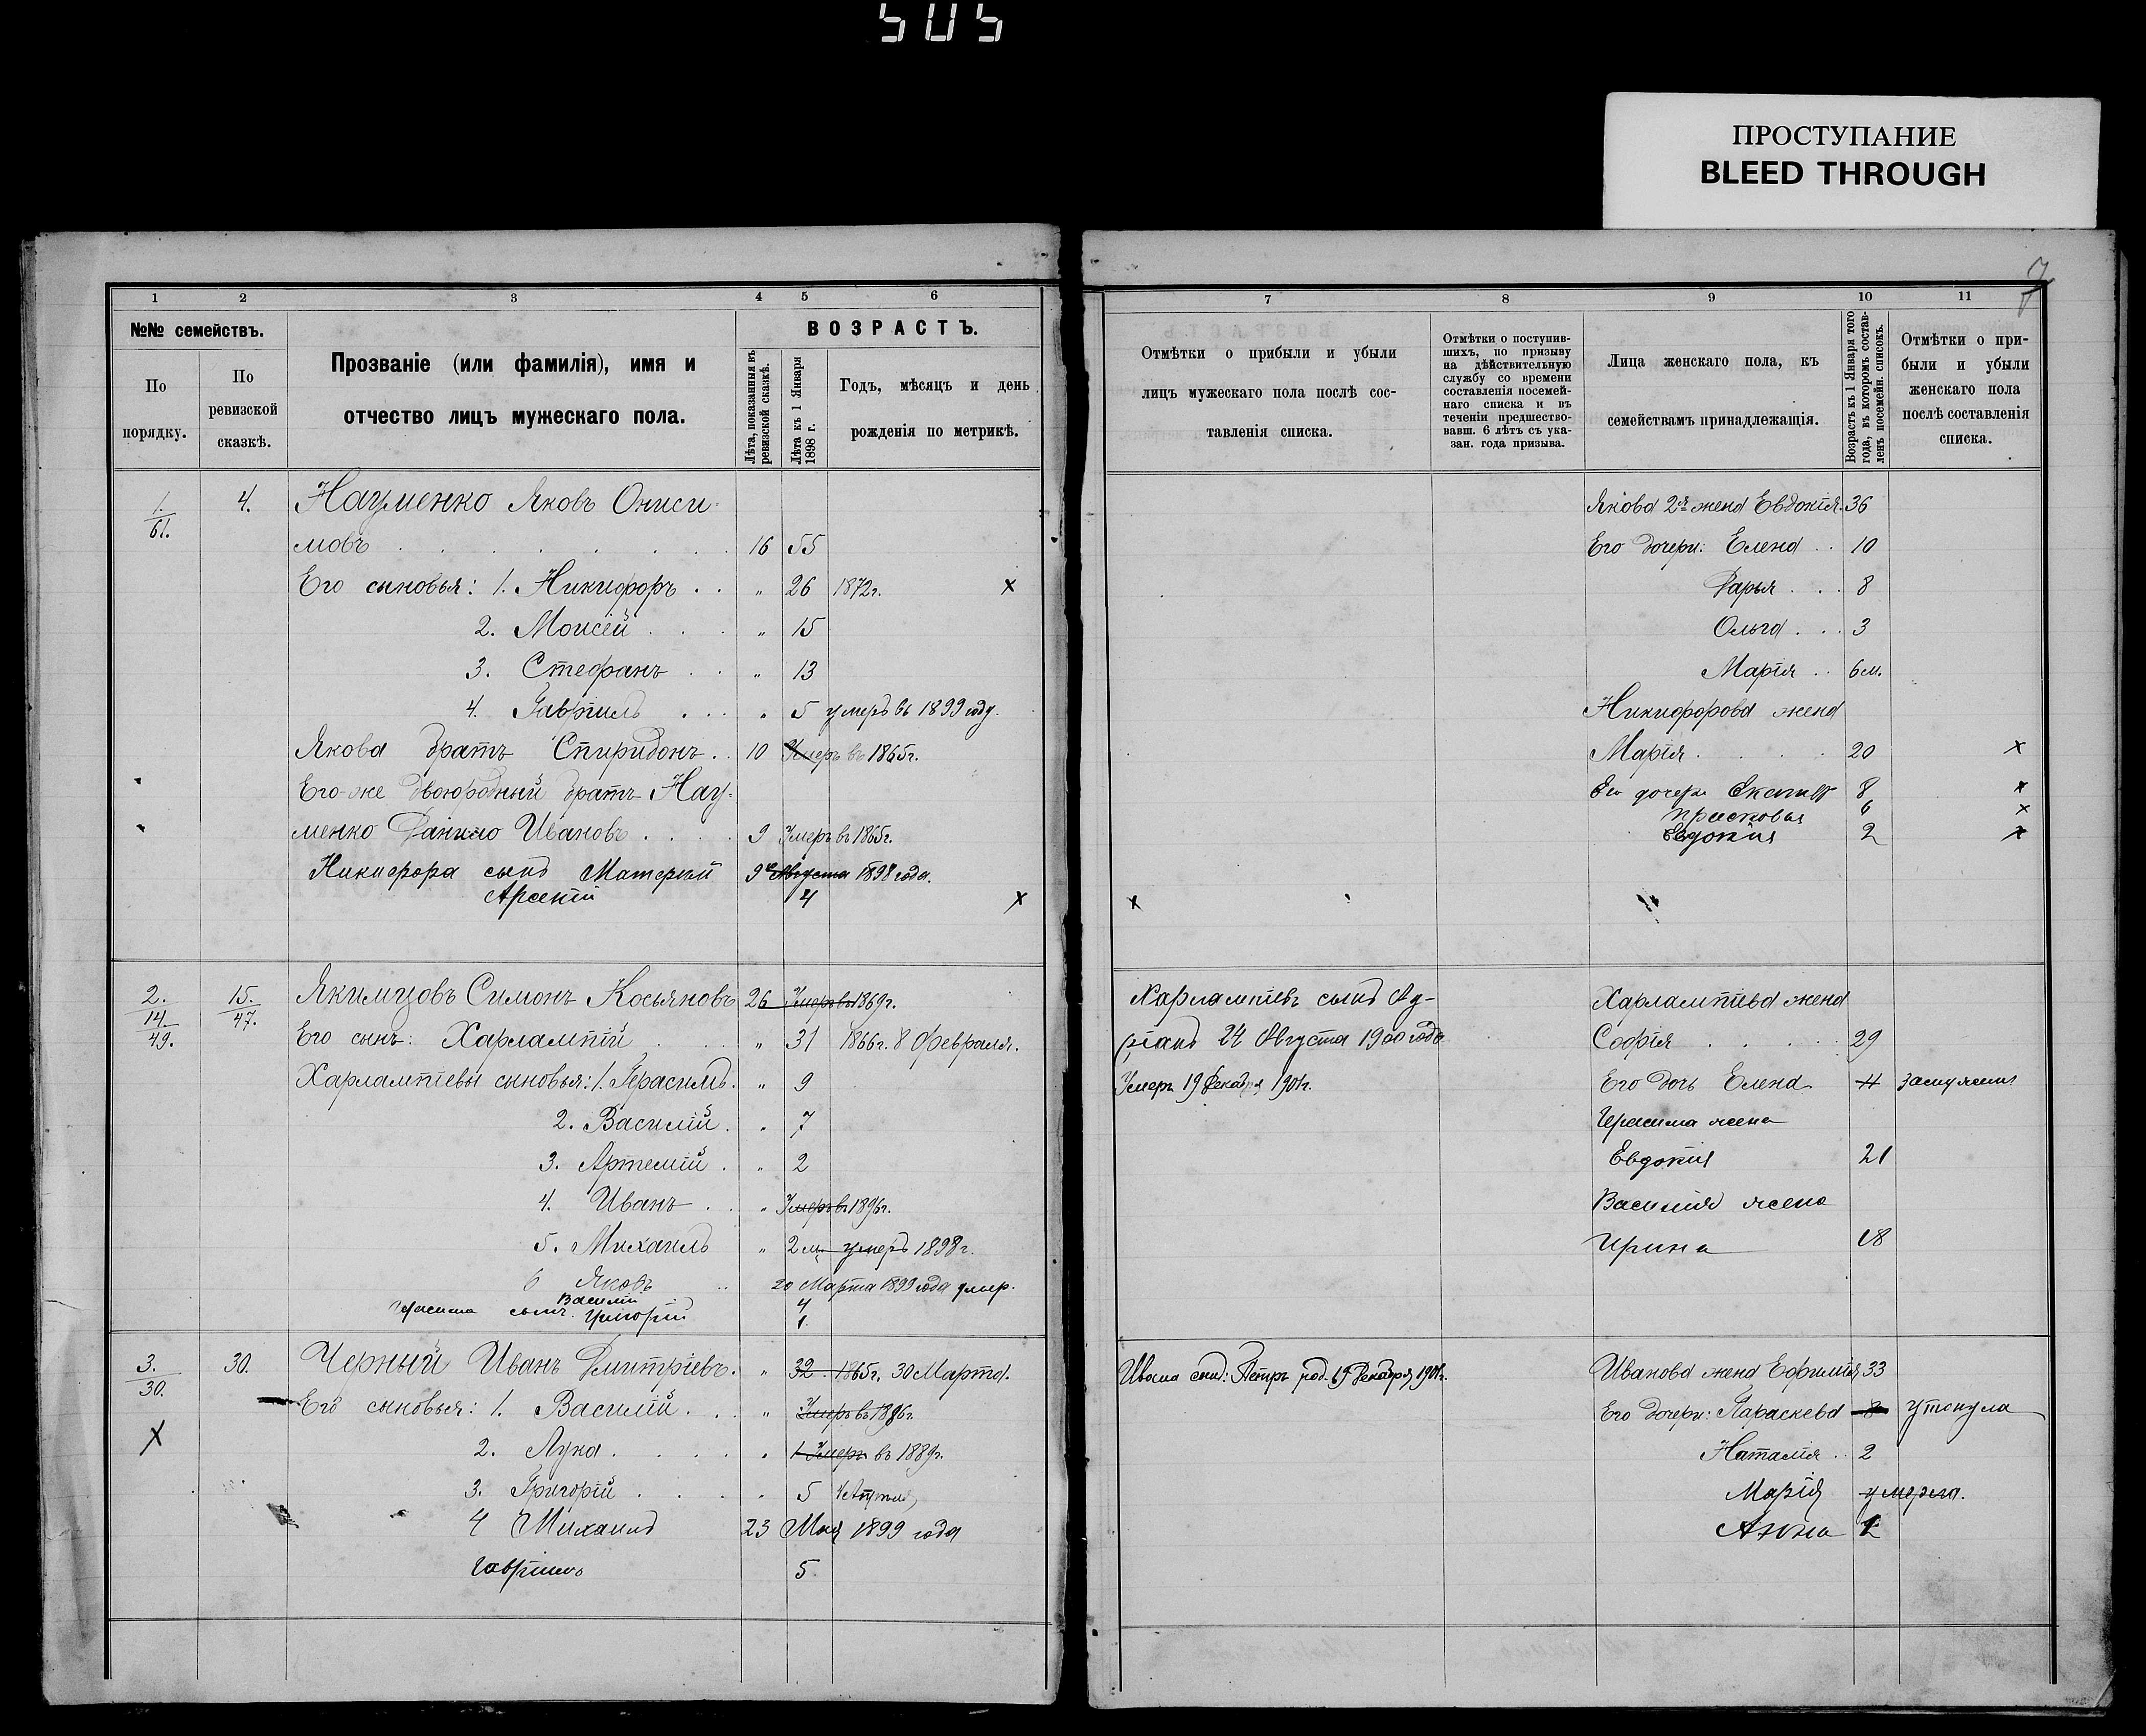 505
ПРОСТУПАНИЕ
BLEED THROUGH
7
1 2 3 4 5 6
№№ семействъ.
По порядку.
По ревизской сказкѣ.
Прозваніе (или фамилія), имя и
отчество лицъ мужескаго пола.
ВОЗРАСТЪ.
Лѣта, показанныя въ ревизской сказкѣ.
Лѣта къ 1 Января 1898 г.
Годъ, мѣсяцъ и день
рожденія по метрикѣ.
1. 61. 4. Науменко Яковъ Ониси-
мовъ 16 55
Его сыновья: 1. Никифоръ „ 26 1872г. х
2. Моисей „ 15
3. Стефанъ „ 13
4. Гавріилъ „ 5 умеръ въ 1899 году.
Якова братъ Спиридонъ 10 Умеръ въ 1865г.
Его-же двоюродный братъ Нау-
менко Данило Ивановъ 9 Умеръ въ 1865г.
Никифора сынъ 9 Августа 1898 года.
Арсеній 4 х
2. 14. 49. 15. 47. Якимцовъ Симонъ Косьяновъ 26 Умеръ въ 1869г.
Его сынъ: Харлампій „ 31 1866г. 8 Февраля.
Харлампіевы сыновья: 1. Герасимъ „ 9
2. Василій „ 7
3. Артемій „ 2
4. Иванъ „ Умеръ въ 1896г.
5. Михаилъ „ 2 м. умеръ 1898 г.
6 Яковъ „ 20 Марта 1899 года умер.
Василій 4
Герасима сынъ Григорій 1
3. 30. 30. Черный Иванъ Дмитріевъ. „ 32 1865г, 30 Марта.
Его сыновья: 1. Василій „ Умеръ въ 1896г
х 2. Лука „ 1 Умеръ въ 1889г.
3. Григорій „ 5
4 Михаилъ 23 Мая 1899 года
Гавріилъ 5
7 8 9 10 11
Отмѣтки о прибыли и убыли
лицъ мужескаго пола послѣ сос-
тавленія списка.
Отмѣтки о поступив-
шихъ, по призыву
на дѣйствительную
службу со времени
составленія посемей-
наго списка и въ
теченіи предшество-
вавш. 6 лѣтъ съ ука-
зан. года призыва.
Лица женскаго пола, къ
семействамъ принадлежащія.
Возрастъ къ 1 Января того
года, въ которомъ состав-
ленъ посемейн. списокъ.
Отмѣтки о при-
были и убыли
женскаго пола
послѣ составленія
списка.
Якова 2я жена Евдокія 36
Его дочери: Елена 10
Дарья 8
Ольга 3
Марія 6 м.
Никифорова жена
Марія 20 х
Его дочери 8 х
Прасковья 6 х
Евдокия 2 х
х
Харлампіевъ сынъ Ад-
ріанъ 24 Августа 1900 года
Умеръ 19 Декабря 1901г.
Харлампіева жена
Софія 29
Его дочь Елена 11 замужемъ
Герасима жена
Евдокия 21
Василия жена
Ирина 18
Ивана сынъ: Петръ род. 19 Декабря 1901г.
Иванова жена Ефимія 33
Его дочери: Параскева 8 утонула
Наталія 2
Марія умерла.
Анна 2